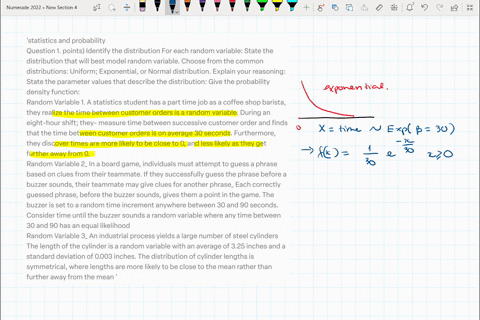 Numerade 2022 » New Section 4
'statistics and probability
Question 1. points) Identify the distribution For each random variable: State the
distribution that will best model random variable. Choose from the common
distributions: Uniform; Exponential, or Normal distribution. Explain your reasoning:
State the parameter values that describe the distribution: Give the probability
density function:
Random Variable 1. A statistics student has a part time job as a coffee shop barista,
they realize the time between customer orders is a random variable. During an
eight-hour shift; they- measure time between successive customer order and finds
that the time between customer orders is on average 30 seconds. Furthermore,
they discover times are more likely to be close to 0, and less likely as they get
further away from 0.
Random Variable 2_ In a board game, individuals must attempt to guess a phrase
based on clues from their teammate. If they successfully guess the phrase before a
buzzer sounds, their teammate may give clues for another phrase, Each correctly
guessed phrase, before the buzzer sounds, gives them a point in the game. The
buzzer is set to a random time increment anywhere between 30 and 90 seconds.
Consider time until the buzzer sounds a random variable where any time between
30 and 90 has an equal likelihood
Random Variable 3_ An industrial process yields a large number of steel cylinders
The length of the cylinder is a random variable with an average of 3.25 inches and a
standard deviation of 0.003 inches. The distribution of cylinder lengths is
symmetrical, where lengths are more likely to be close to the mean rather than
further away from the mean '
exponential.
0
X = time ~ Exp(β = 30)
→ f(x) = 1/30 e^(-x/30) x ≥ 0